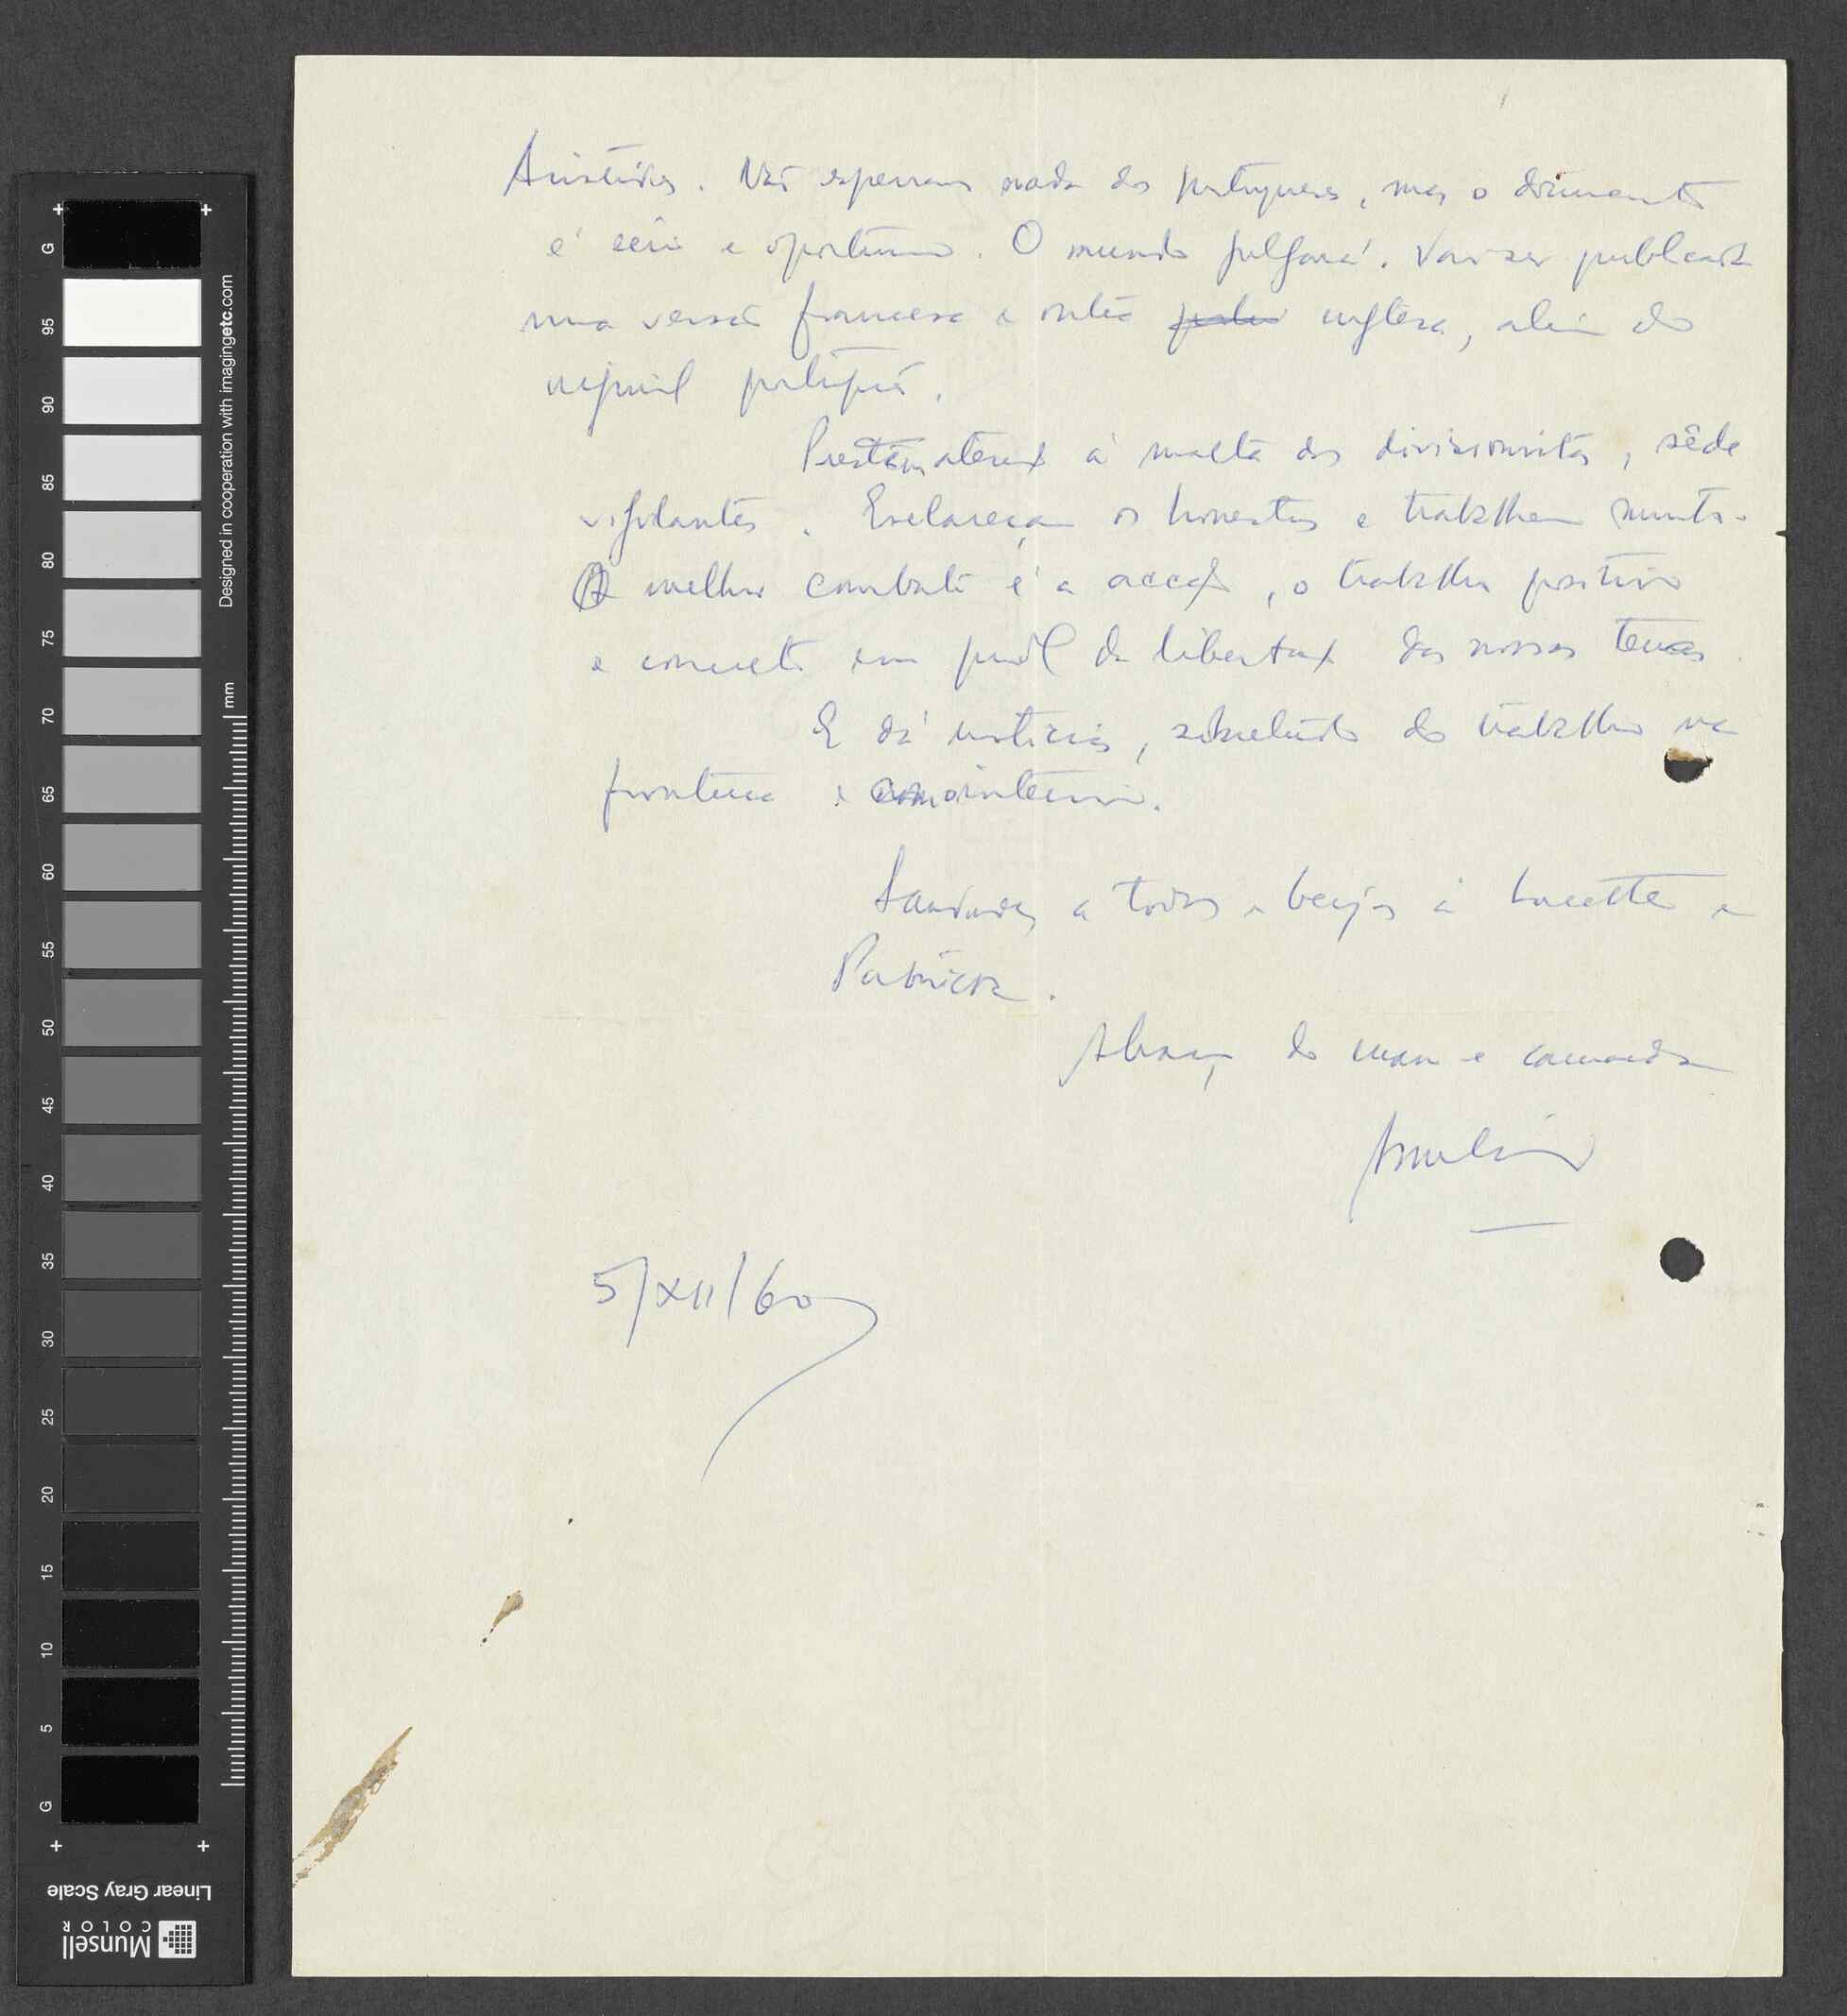 Aristides. Não esperamos nada dos portugueses, mas o documento
é sério e oportuno. O mundo julgará. Vai ser publicada
uma versão francesa e outra inglesa, além do
original português.
Prestem atenção à malta dos divisionistas, sêde
vigilantes. Esclareçam os honestos e trabalhem muito.
O melhor combate é a acção, o trabalho positivo
e concreto em prol da libertação das nossas terras.
E dá notícias, sobretudo do trabalho na
fronteira e no interior.
Saudades a todos e beijos à Lucette e
Patrícia.
Abraço do irmão e camarada
5/XII/60
G
95
90
85
80
75
70
65
60
55
50
45
40
35
30
25
20
15
10
5
G
mm
Designed in cooperation with imagingetc.com
Linear Gray Scale
Munsell
COLOR